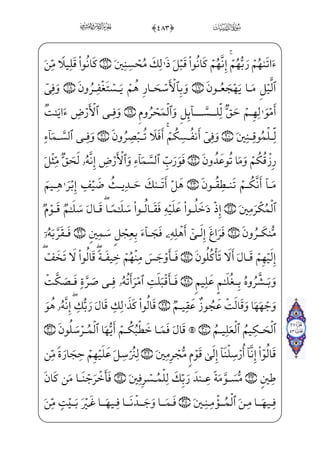 ﴿٤٨٣﴾
ءَاتَىٰهُمْ رَبُّهُمْ ۚ إِنَّهُمْ كَانُوا۟ قَبْلَ ذَٰلِكَ مُحْسِنِينَ ١٦ كَانُوا۟ قَلِيلًا مِّنَ
ٱلَّيْلِ مَا يَهْجَعُونَ ١٧ وَبِٱلْأَسْحَارِ هُمْ يَسْتَغْفِرُونَ ١٨ وَفِىٓ
أَمْوَٰلِهِمْ حَقٌّ لِّلسَّآئِلِ وَٱلْمَحْرُومِ ١٩ وَفِى ٱلْأَرْضِ ءَايَٰتٌ
لِّلْمُوقِنِينَ ٢٠ وَفِىٓ أَنفُسِكُمْ ۚ أَفَلَا تُبْصِرُونَ ٢١ وَفِى ٱلسَّمَآءِ
رِزْقُكُمْ وَمَا تُوعَدُونَ ٢٢ فَوَرَبِّ ٱلسَّمَآءِ وَٱلْأَرْضِ إِنَّهُۥ لَحَقٌّ مِّثْلَ
مَآ أَنَّكُمْ تَنطِقُونَ ٢٣ هَلْ أَتَىٰكَ حَدِيثُ ضَيْفِ إِبْرَٰهِيمَ
ٱلْمُكْرَمِينَ ٢٤ إِذْ دَخَلُوا۟ عَلَيْهِ فَقَالُوا۟ سَلَٰمًا ۖ قَالَ سَلَٰمٌ قَوْمٌ
مُّنكَرُونَ ٢٥ فَرَاغَ إِلَىٰٓ أَهْلِهِۦ فَجَآءَ بِعِجْلٍ سَمِينٍ ٢٦ فَقَرَّبَهُۥٓ
إِلَيْهِمْ قَالَ أَلَا تَأْكُلُونَ ٢٧ فَأَوْجَسَ مِنْهُمْ خِيفَةً ۖ قَالُوا۟ لَا تَخَفْ ۖ
وَبَشَّرُوهُ بِغُلَٰمٍ عَلِيمٍ ٢٨ فَأَقْبَلَتِ ٱمْرَأَتُهُۥ فِى صَرَّةٍ فَصَكَّتْ
وَجْهَهَا وَقَالَتْ عَجُوزٌ عَقِيمٌ ٢٩ قَالُوا۟ كَذَٰلِكِ قَالَ رَبُّكِ ۖ إِنَّهُۥ هُوَ
ٱلْحَكِيمُ ٱلْعَلِيمُ ٣٠ ۞ قَالَ فَمَا خَطْبُكُمْ أَيُّهَا ٱلْمُرْسَلُونَ ٣١
قَالُوٓا۟ إِنَّآ أُرْسِلْنَآ إِلَىٰ قَوْمٍ مُّجْرِمِينَ ٣٢ لِنُرْسِلَ عَلَيْهِمْ حِجَارَةً مِّن
طِينٍ ٣٣ مُّسَوَّمَةً عِندَ رَبِّكَ لِلْمُسْرِفِينَ ٣٤ فَأَخْرَجْنَا مَن كَانَ
فِيهَا مِنَ ٱلْمُؤْمِنِينَ ٣٥ فَمَا وَجَدْنَا فِيهَا غَيْرَ بَيْتٍ مِّنَ